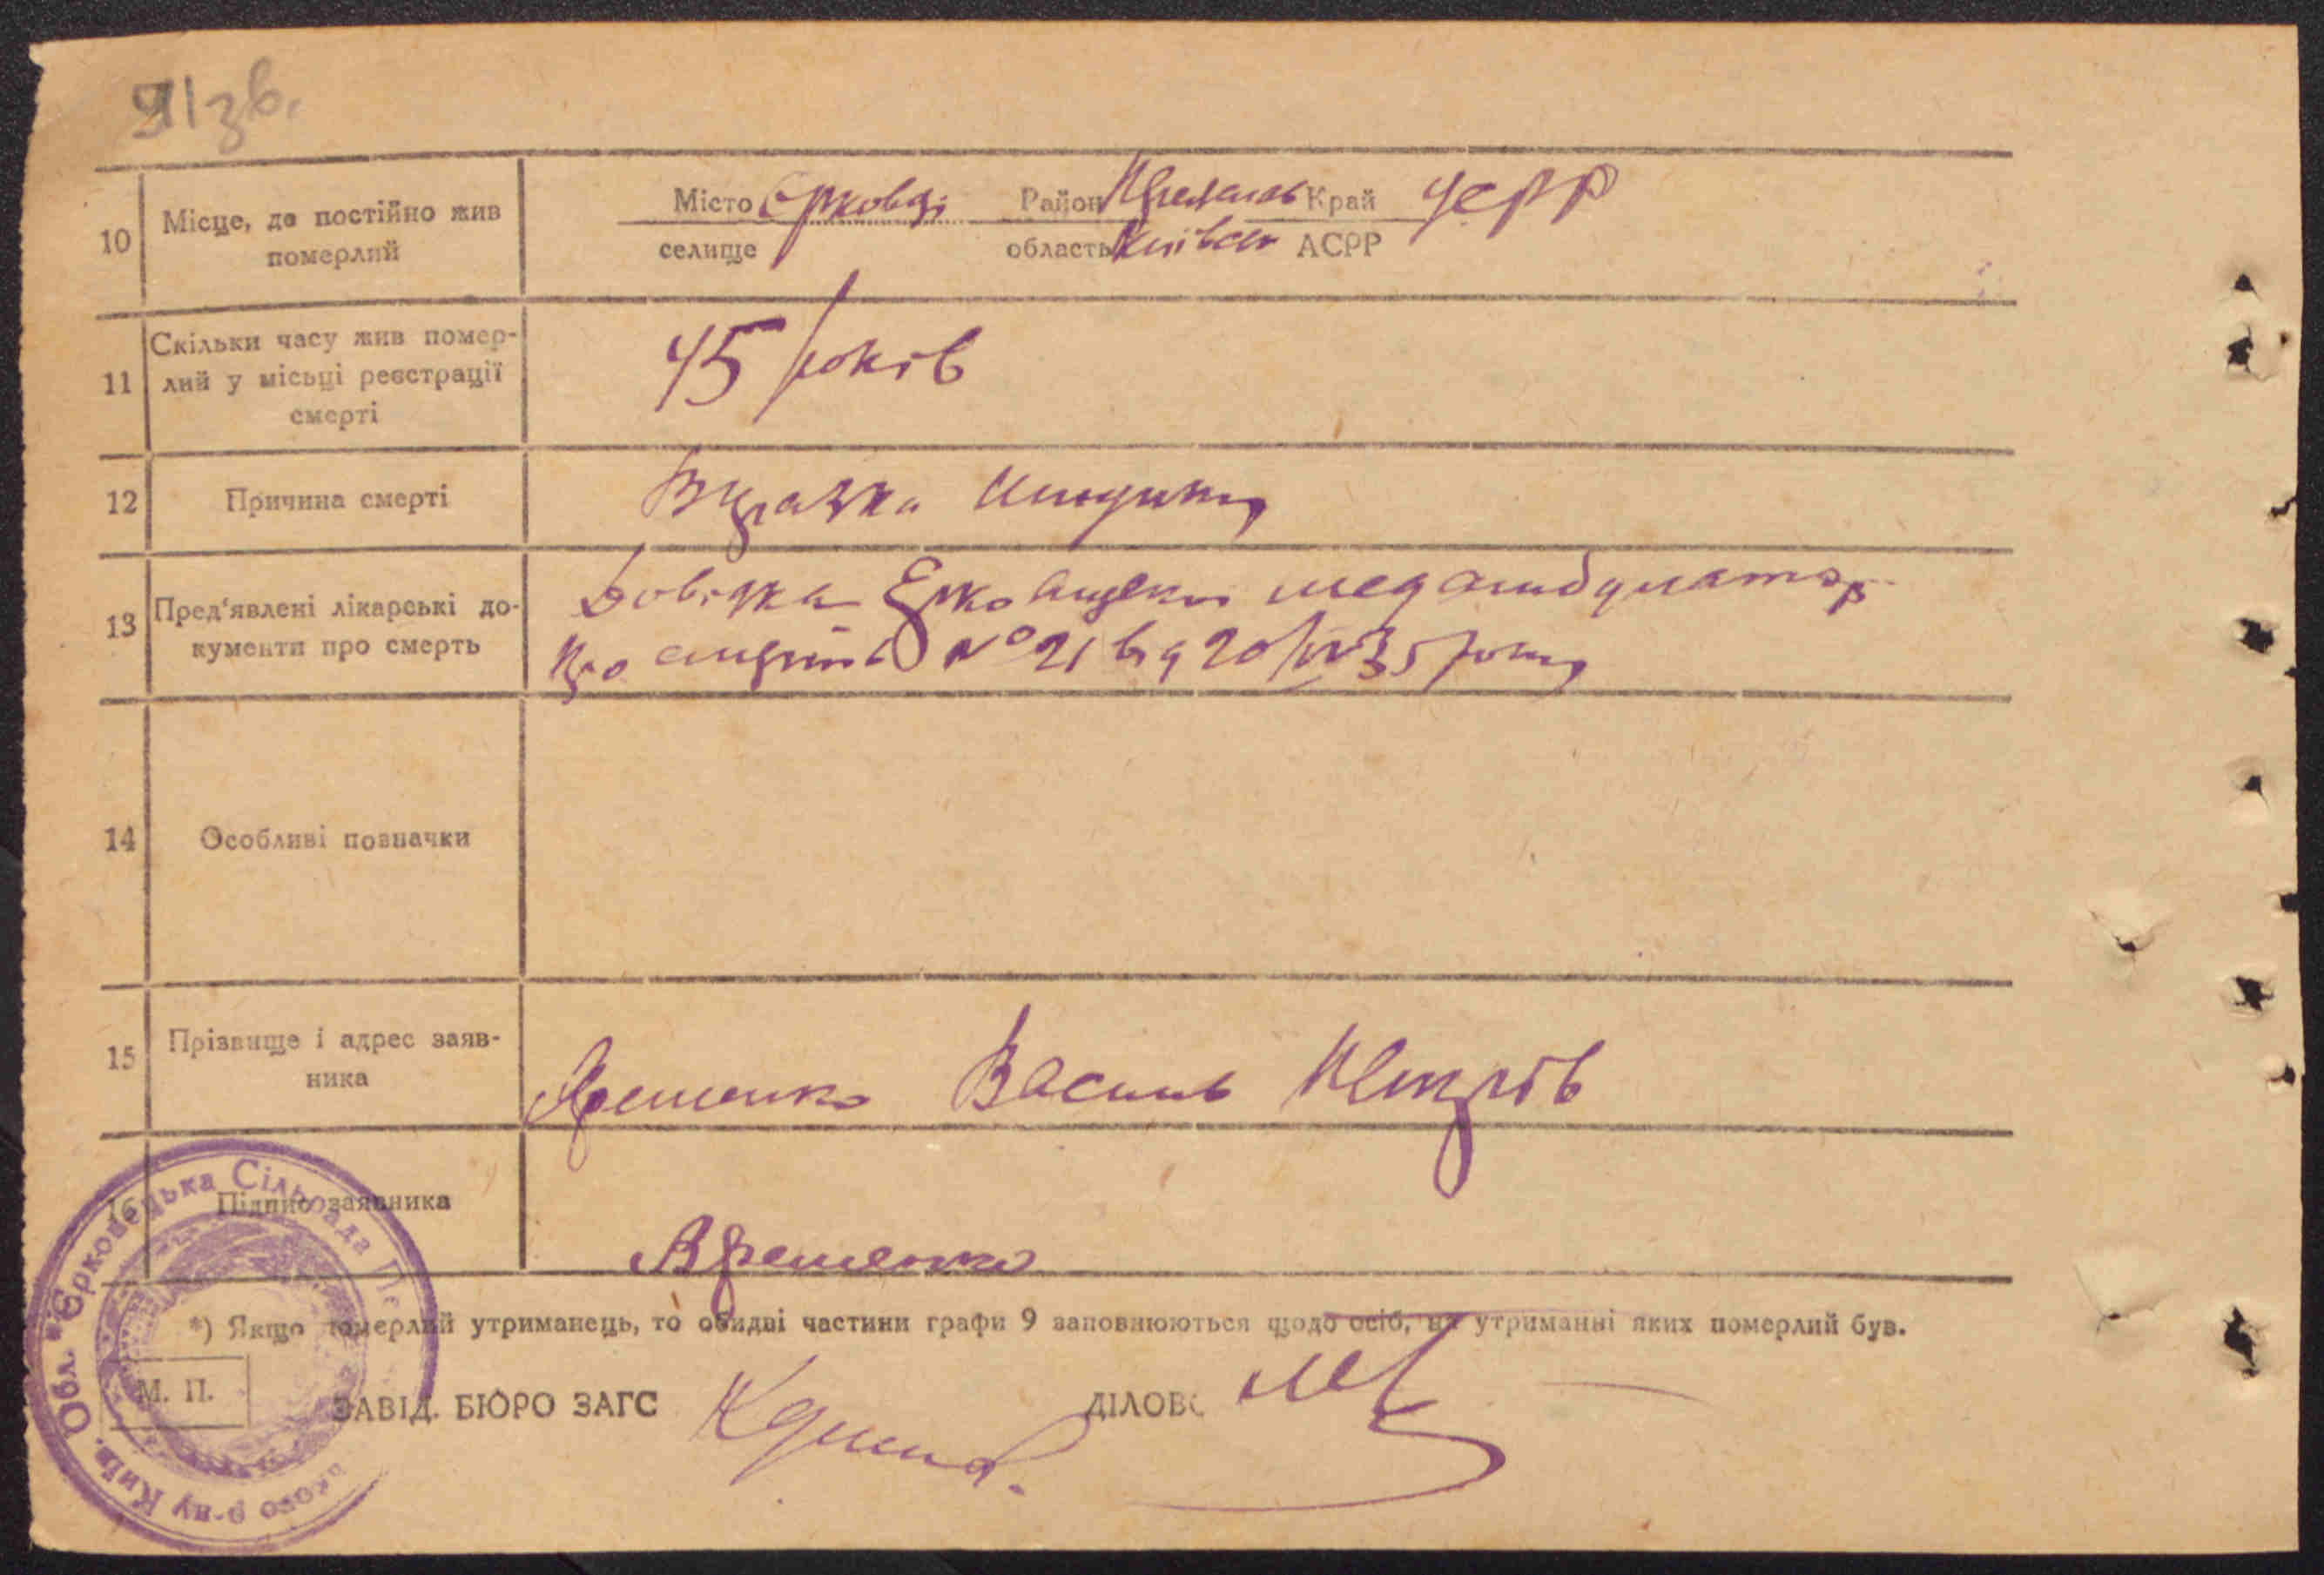 91зв.
10 Місце, де постійно жив померлий
Місто Єрковці Район Край УСРР
селище область Київськ АСРР
11 Скільки часу жив помер-
лий у місьці реєстрації
смерті
45 років
12 Причина смерті
Виразка
13 Пред'явлені лікарські до-
кументи про смерть
Довідка Ерковецької медамбулатор
про смерть № 21 від 20/IV 35 року
14 Особливі позначки
15 Прізвище і адрес заяв-
ника
Яременко Василь Петрів
16 Підпис заявника
Яременко
*) Якщо померлий утриманець, то обидві частини графи 9 заповнюються щодо осіб, на утриманні яких померлий був.
М. П.
ЗАВІД. БЮРО ЗАГС
ДІЛОВ
Єрковецька Сільрада
р-ну Київ. Обл.